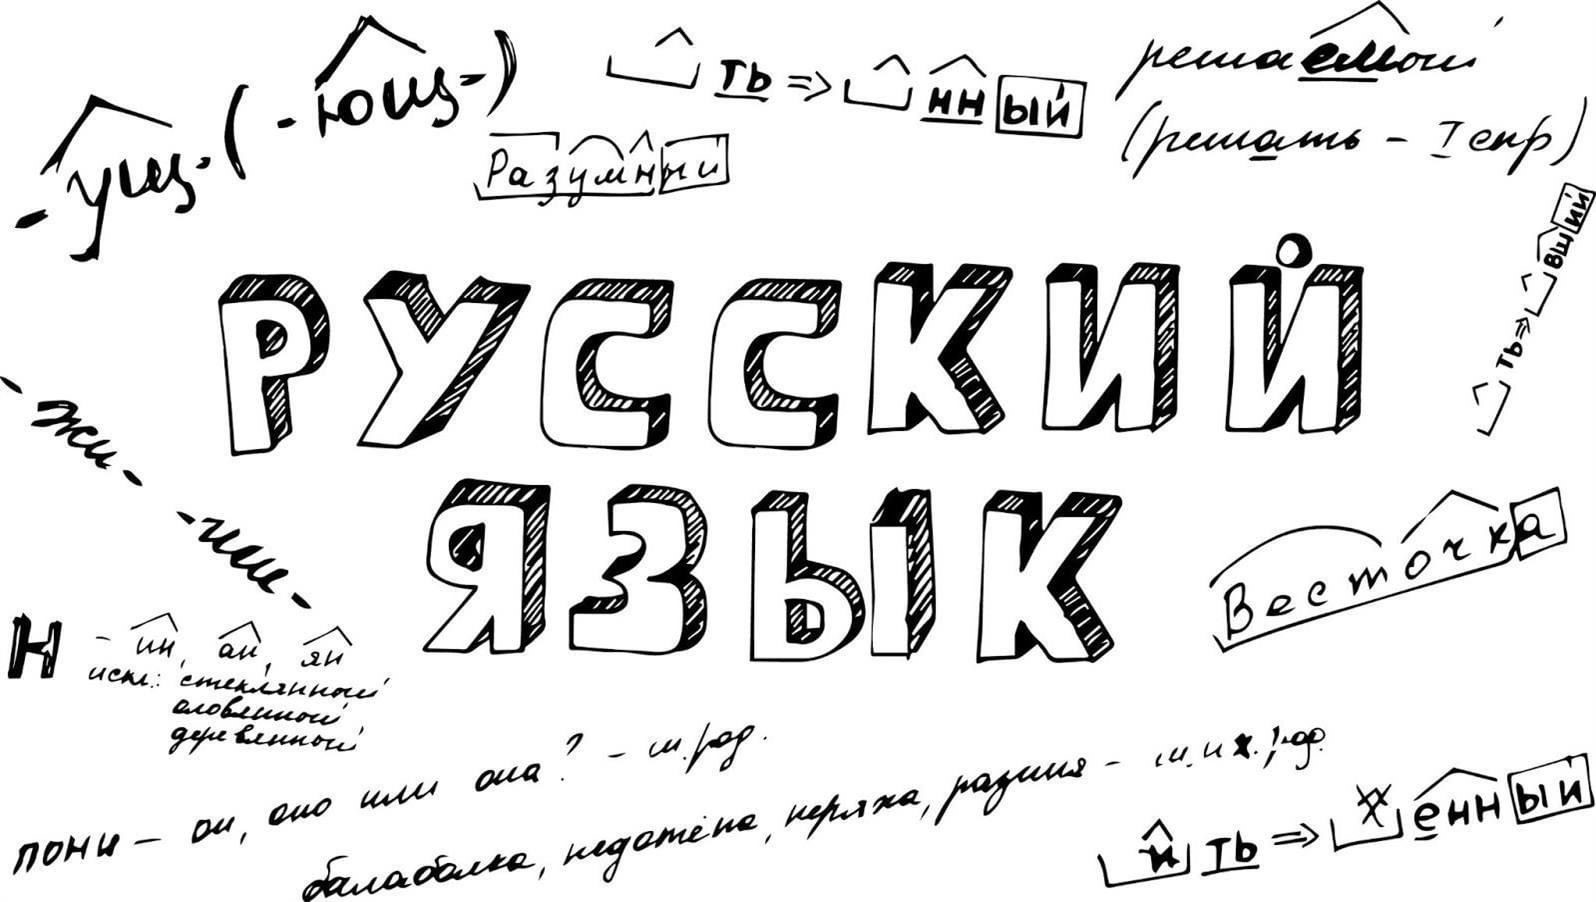 -ущ- (-ющ-)
ть => нный
решаемый
(решать - I спр)
Разумный
ть => вщий
РУССКИЙ
ЯЗЫК
-жи-
-ши-
Весточка
н - ин, ан, ян
искл.: стеклянный
оловянный
деревянный
пони - он, оно или она? - м.род.
балаболка, недотёпа, неряха, разиня - м. и ж. род.
и ть => енный